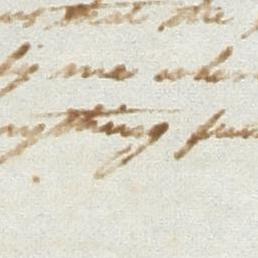 that the
by me when
anything fur